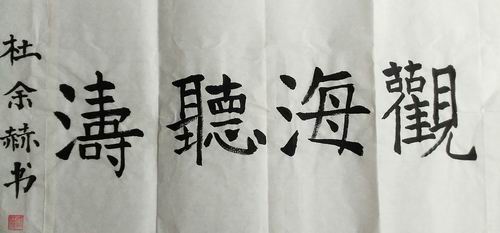 觀海聽濤
杜余赫书